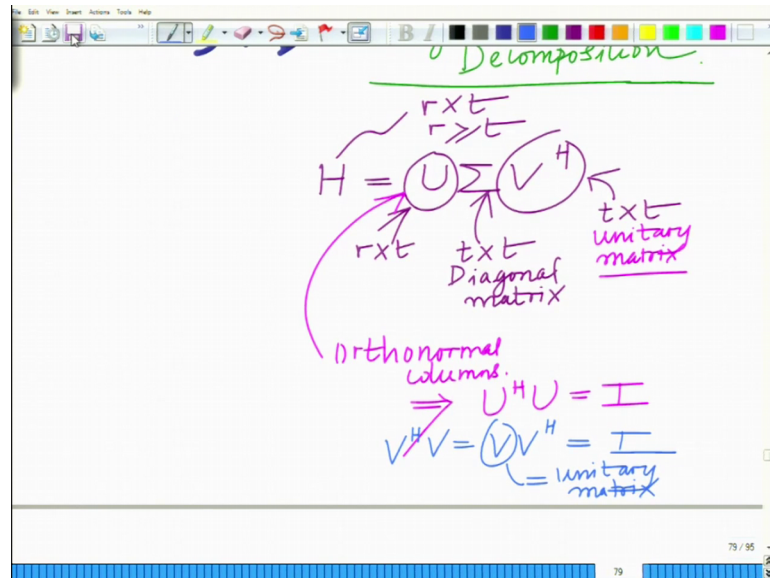 File Edit View Insert Actions Tools Help
B I
Decomposition.
r×t
r≥t
H = U Σ V^H
r×t
t×t
Diagonal
matrix
t×t
unitary
matrix
Orthonormal
columns.
⇒ U^H U = I
V^H V = V V^H = I
= unitary
matrix
79 / 95
79